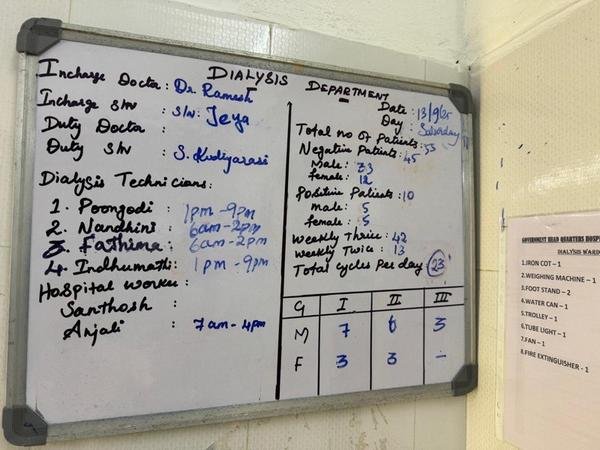 DIALYSIS DEPARTMENT
Incharge Doctor : Dr. Ramesh
Incharge S/N : S/N: Jeya
Duty Doctor :
Duty S/N : S. Kudiyarasi
Dialysis Technicians:
1. Poongodi : 1pm - 9pm
2. Nandhini : 6am - 2pm
3. Fathima : 6am - 2pm
4. Indhumathi : 1pm - 9pm
Hospital worker :
Santhosh :
Anjali : 7am - 4pm
Date : 13/9/25
Day : Saturday
Total no of Patients : 55
Negative Patients : 45
Male : 33
female : 12
Positive Patients : 10
male : 5
female : 5
Weekly Thrice : 42
Weekly Twice : 13
Total cycles Per day 23
G I II III
M 7 6 3
F 3 3 -
GOVERNMENT HEAD QUARTERS HOSP
DIALYSIS WARD
1.IRON COT – 1
2.WEIGHING MACHINE – 1
3.FOOT STAND – 2
4.WATER CAN – 1
5.TROLLEY – 1
6.TUBE LIGHT – 1
7.FAN – 1
8.FIRE EXTINGUISHER - 1